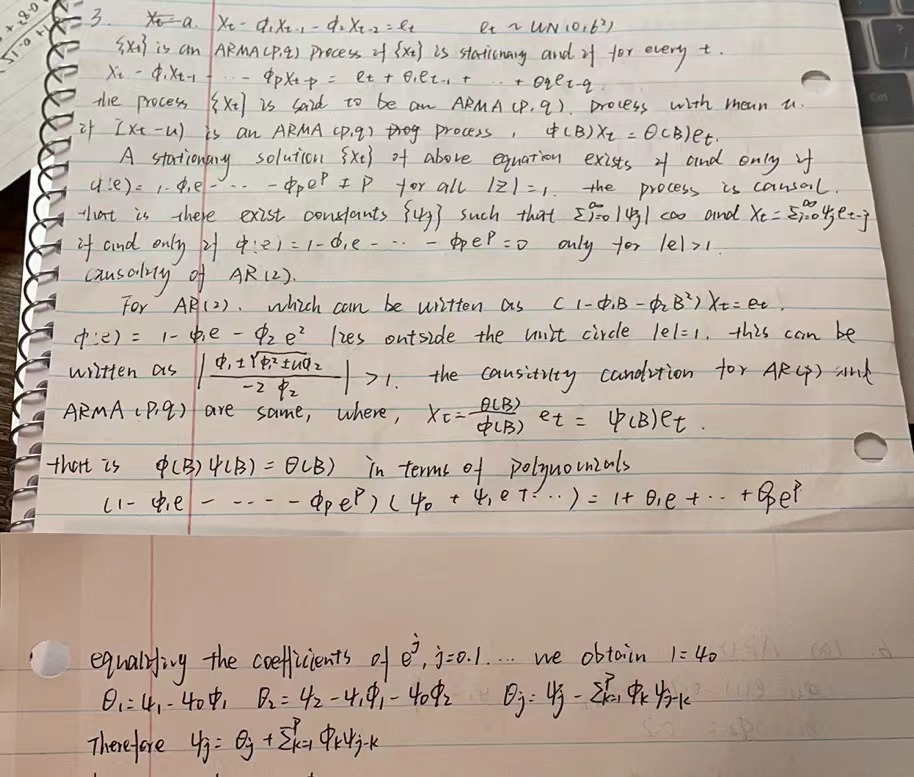 3. X̶t̶-̶a̶. Xt - ϕ1Xt-1 - ϕ2Xt-2 = et et ~ WN(0, б²)
{Xt} is an ARMA(P,q) process if {Xt} is stationary and if for every t.
Xt - ϕ1Xt-1 - ... - ϕpXt-p = et + θ1et-1 + ... + θqet-q
the process {Xt} is said to be an ARMA(P,q). process with mean u.
if [Xt-u) is an ARMA(P,q) p̶r̶o̶g̶ process, ϕ(B)Xt = θ(B)et.
A stationary solution {Xt} of above equation exists if and only if
ϕ(e) = 1 - ϕ1e - ... - ϕpe^P ≠ P for all |Z| = 1. the process is causal.
that is there exist constants {ψj} such that Σ_{j=0}^∞ |ψj| < ∞ and Xt = Σ_{j=0}^∞ ψjet-j
if and only if ϕ(e) = 1 - ϕ1e - ... - ϕpe^P = 0 only for |e| > 1
causality of AR(2).
For AR(2). which can be written as (1 - ϕ1B - ϕ2B²) Xt = et.
ϕ(e) = 1 - ϕ1e - ϕ2e² lzes outside the unit circle |e| = 1. this can be
written as |(ϕ1 ± √(ϕ1² ± 4ϕ2)) / (-2ϕ2)| > 1. the causitity condition for AR(p) and
ARMA(P,q) are same, where, Xt = θ(B)/ϕ(B) et = ψ(B)et.
that is ϕ(B)ψ(B) = θ(B) in terms of polynomials
(1 - ϕ1e - ---- - ϕpe^P)(ψ0 + ψ1e + ...) = 1 + θ1e + ... + θpe^P
equalitivg the coefficients of e^j, j=0.1.... we obtain 1 = ψ0
θ1 = ψ1 - ψ0ϕ1 θ2 = ψ2 - ψ1ϕ1 - ψ0ϕ2 θj = ψj - Σ_{k=1}^P ϕkψj-k
Therefore ψj = θj + Σ_{k=1}^P ϕkψj-k